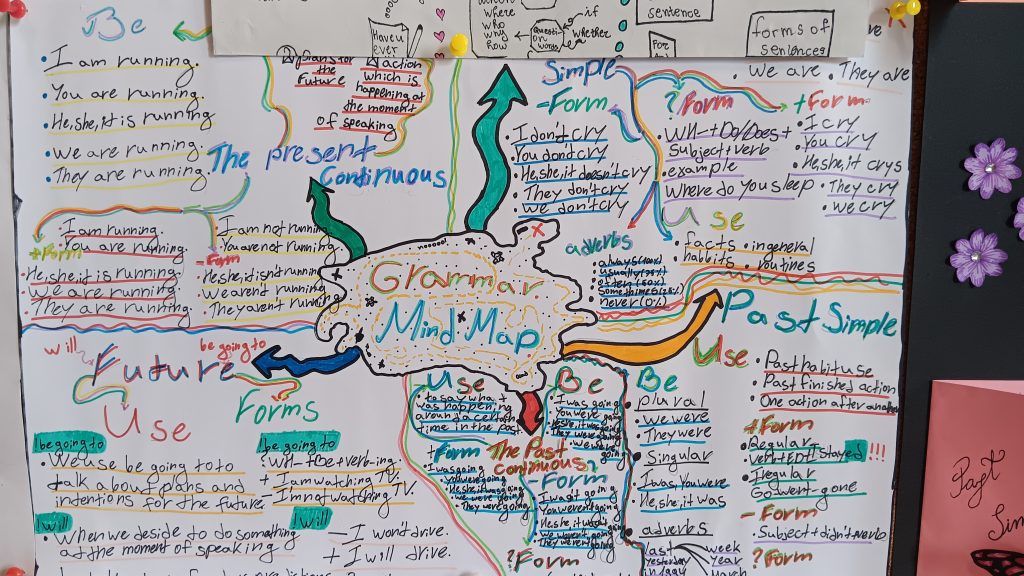 where
who
why
how
Haven
ever
if
whether
words
For
sentence
forms of
sentences
Be
• I am running.
• You are running.
• He, she, it is running
• We are running.
• They are running.
② plans for
the
Future
action
which is
happening at
the moment
of speaking
The present
Continuous
+ Form
• I am running.
• You are running.
• He, she, it is running.
• We are running.
• They are running.
- Form
I am not running
• You are not running.
He, she, it isn't running
• We aren't running
• They aren't running
Simple
- Form
• I don't cry
• You don't cry
• He, she, it doesn't cry
• They don't cry
• We don't cry
? Form
• WH-+Do/Does+
Subject+verb
• example
Where do you sleep
• We are • They are
+ Form
• I cry
• You cry
• He, she, it crys
• They cry
• we cry
Use
• facts • in general
• habbits • routines
adverbs
• always (100%)
• usually
• often
• sometimes
• never (0%)
Grammar
Mind Map
Past Simple
Use
• Past habit use
• Past finished action
• One action after another
+ Form
• Regular
Verb+ED!! stayed !!!
• Iregular
Go-went-gone
- Form
• Subject+didn't+verb
? Form
Be
plural
• We were
• They were
• Singular
• I was, You were
• He, she, it was
• adverbs
last
yesterday
week
year
March
will
be going to
Future
Use
Forms
be going to
• We use be going to to
talk about plans and
intentions for the future.
I will
• When we decide to do something
at the moment of speaking
be going to
? WH-+be+verb-ing
+ I am watching TV.
- I'm not watching TV.
I will
- I won't drive.
+ I will drive.
Use
• to say what
was happening
around a certain
time in the past.
Be
• I was going
• You were
• He, she, it was
The Past
continuous
+ Form
• I was going
• You were going
• He, she, it was going
• We were going
• They were going
- Form
• I wasn't going
• You weren't going
• He, she, it wasn't
• We weren't going
• They weren't going
? Form
Past